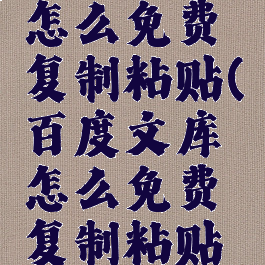 怎么免费
复制粘贴(
百度文库
怎么免费
复制粘贴